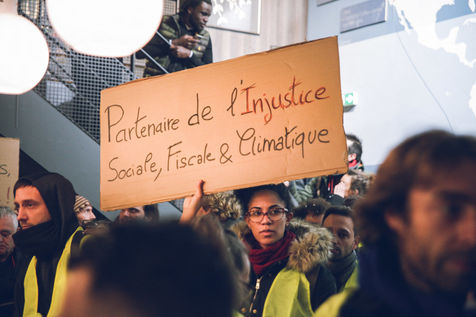 Partenaire de l'Injustice
Sociale, Fiscale & Climatique